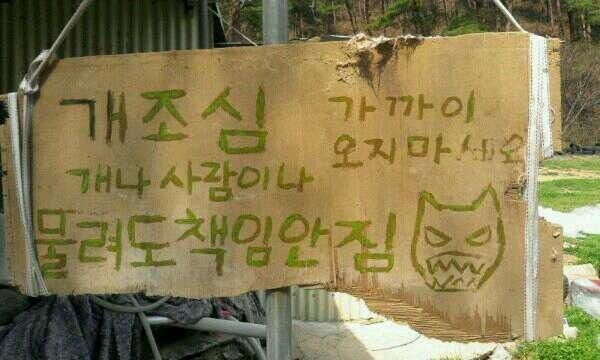 개조심
가까이
오지마세요
개나 사람이나
물려도 책임안짐